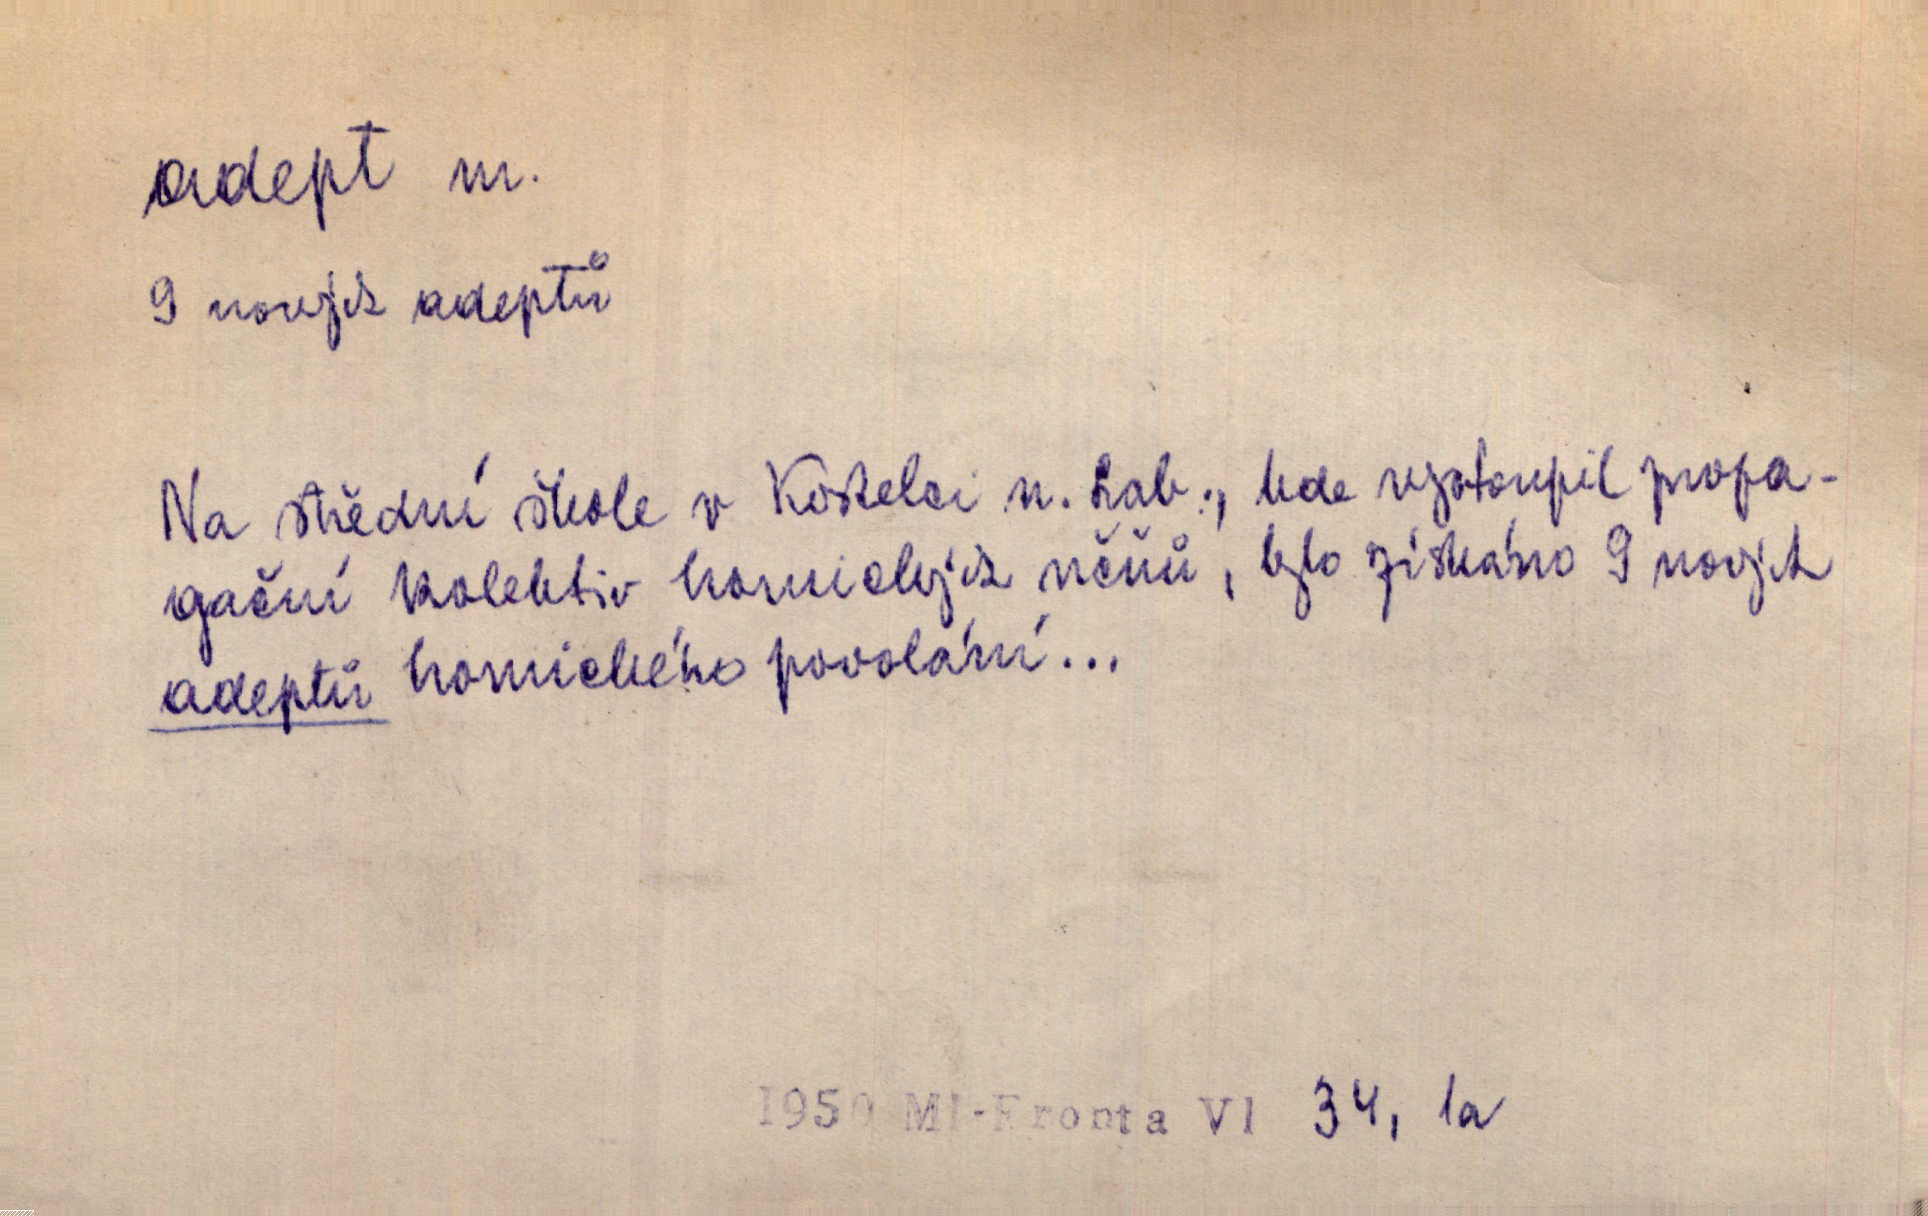 adept m.
9 nových adeptů
Na střední škole v Kostelci n. Lab., kde vystoupil propa-
gační kolektiv hornických učňů, bylo získáno 9 nových
adeptů hornického povolání...
1950 Ml-Fronta VI 34, 1a